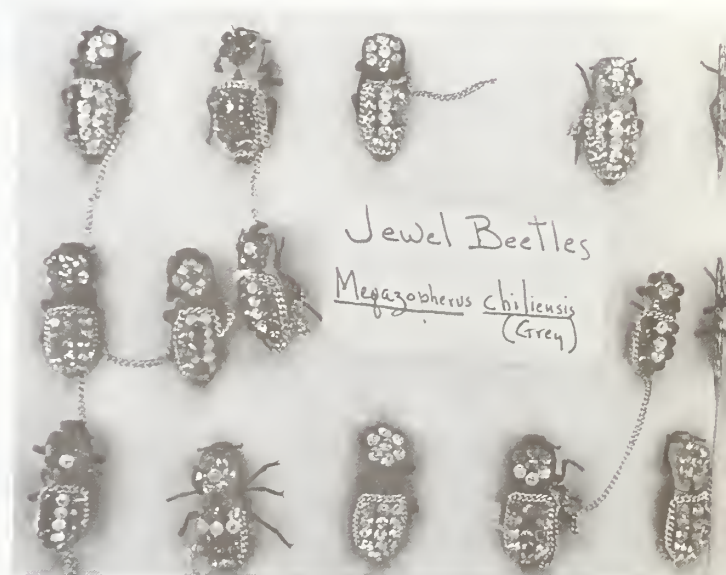 Jewel Beetles
Megazopherus chiliensis
(Grey)